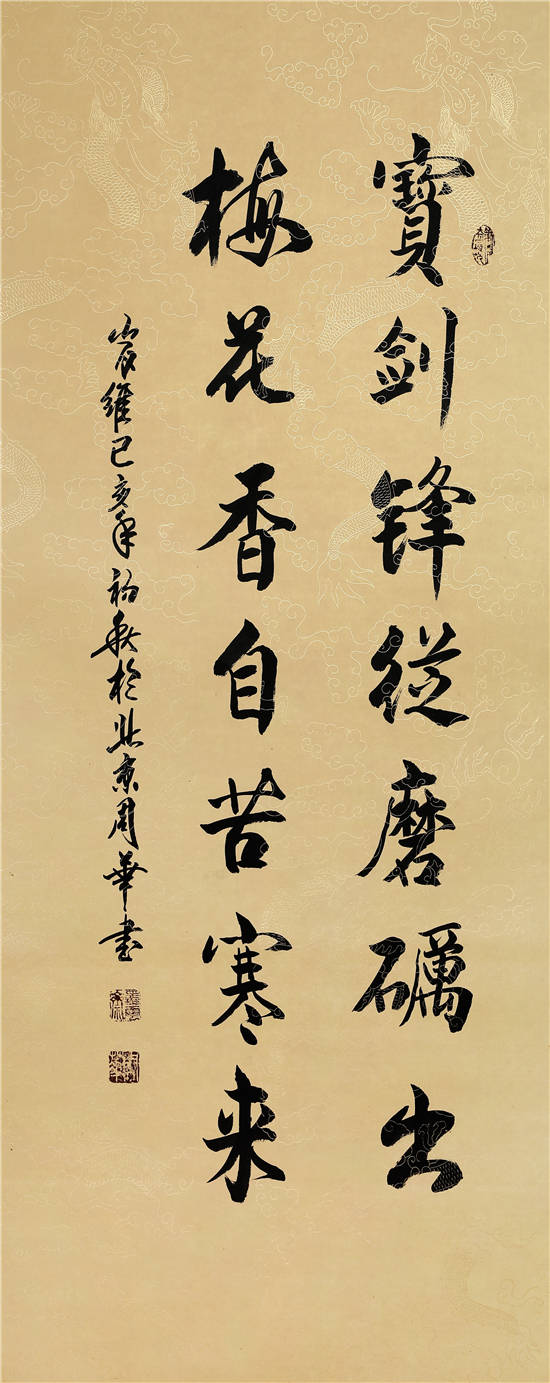 寶剑锋從磨礪出
梅花香自苦寒来
岁維己亥年初秋於北京周華書